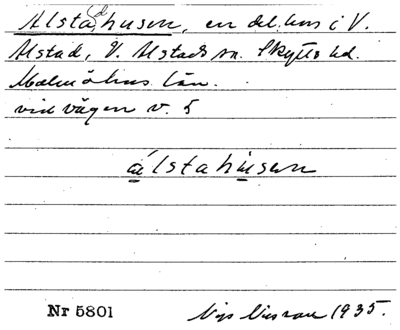 Alstadhusen, en del. hus i V.
Alstad, V. Alstads sn. Skytts hd.
Malmöhus län.
vid vägen v. 5
álstahusen
Nr 5801 1935.